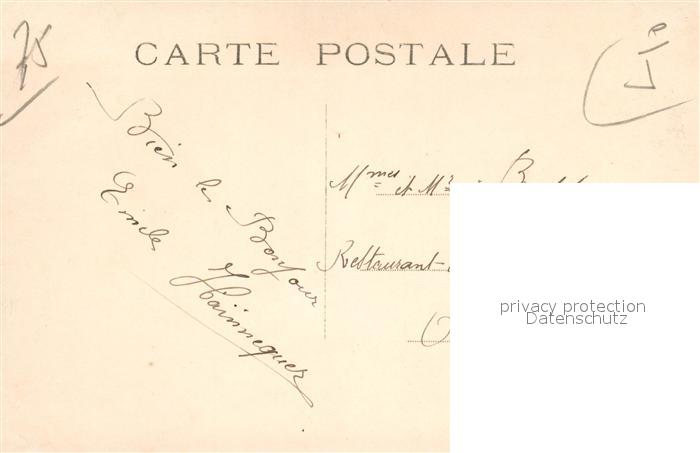 75
CARTE POSTALE
Bien le Bonjour
Emile
Mmes et Mr
Restaurant
privacy protection
Datenschutz